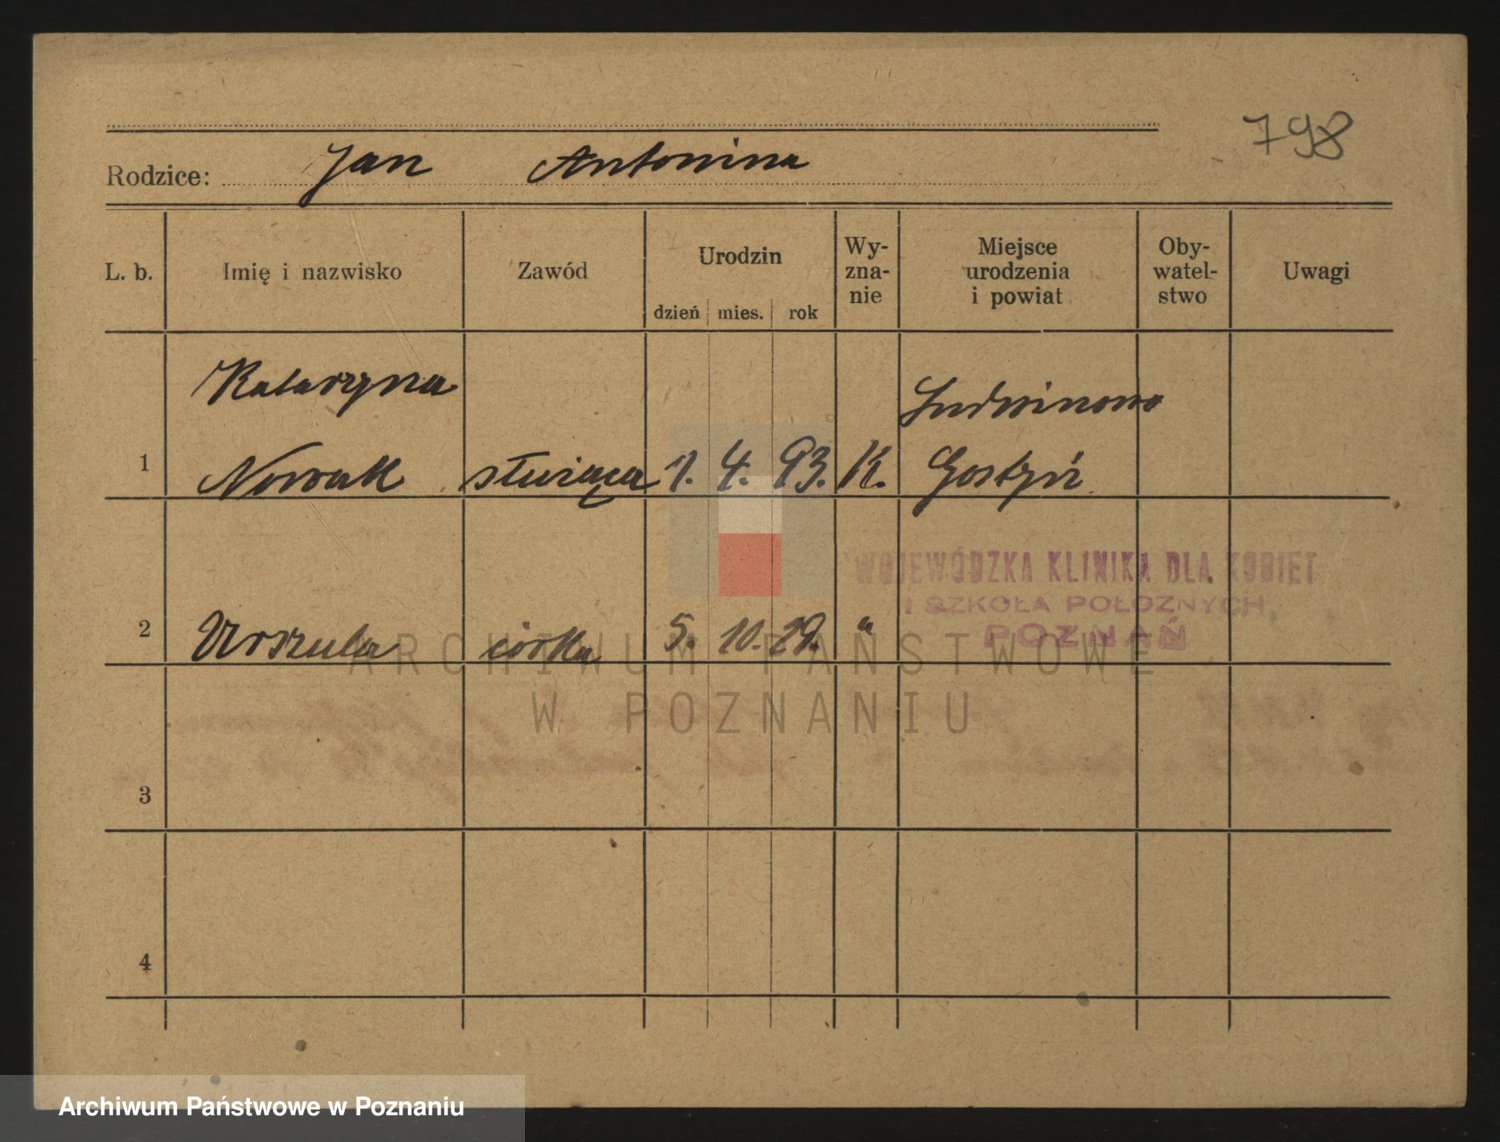 798
Rodzice: Jan Antonina
L. b. Imię i nazwisko Zawód Urodzin dzień mies. rok Wy- zna- nie Miejsce urodzenia i powiat Oby- watel- stwo Uwagi
Katarzyna Ludwinowo
1 Nowak służąca 1. 4. 93. K. Gostyń
WOJEWÓDZKA KLINIKA DLA KOBIET
I SZKOŁA POŁOŻNYCH
2 Urszula córka 5. 10. 29. "
POZNAŃ
ARCHIWUM PAŃSTWOWE
W POZNANIU
3
4
Archiwum Państwowe w Poznaniu